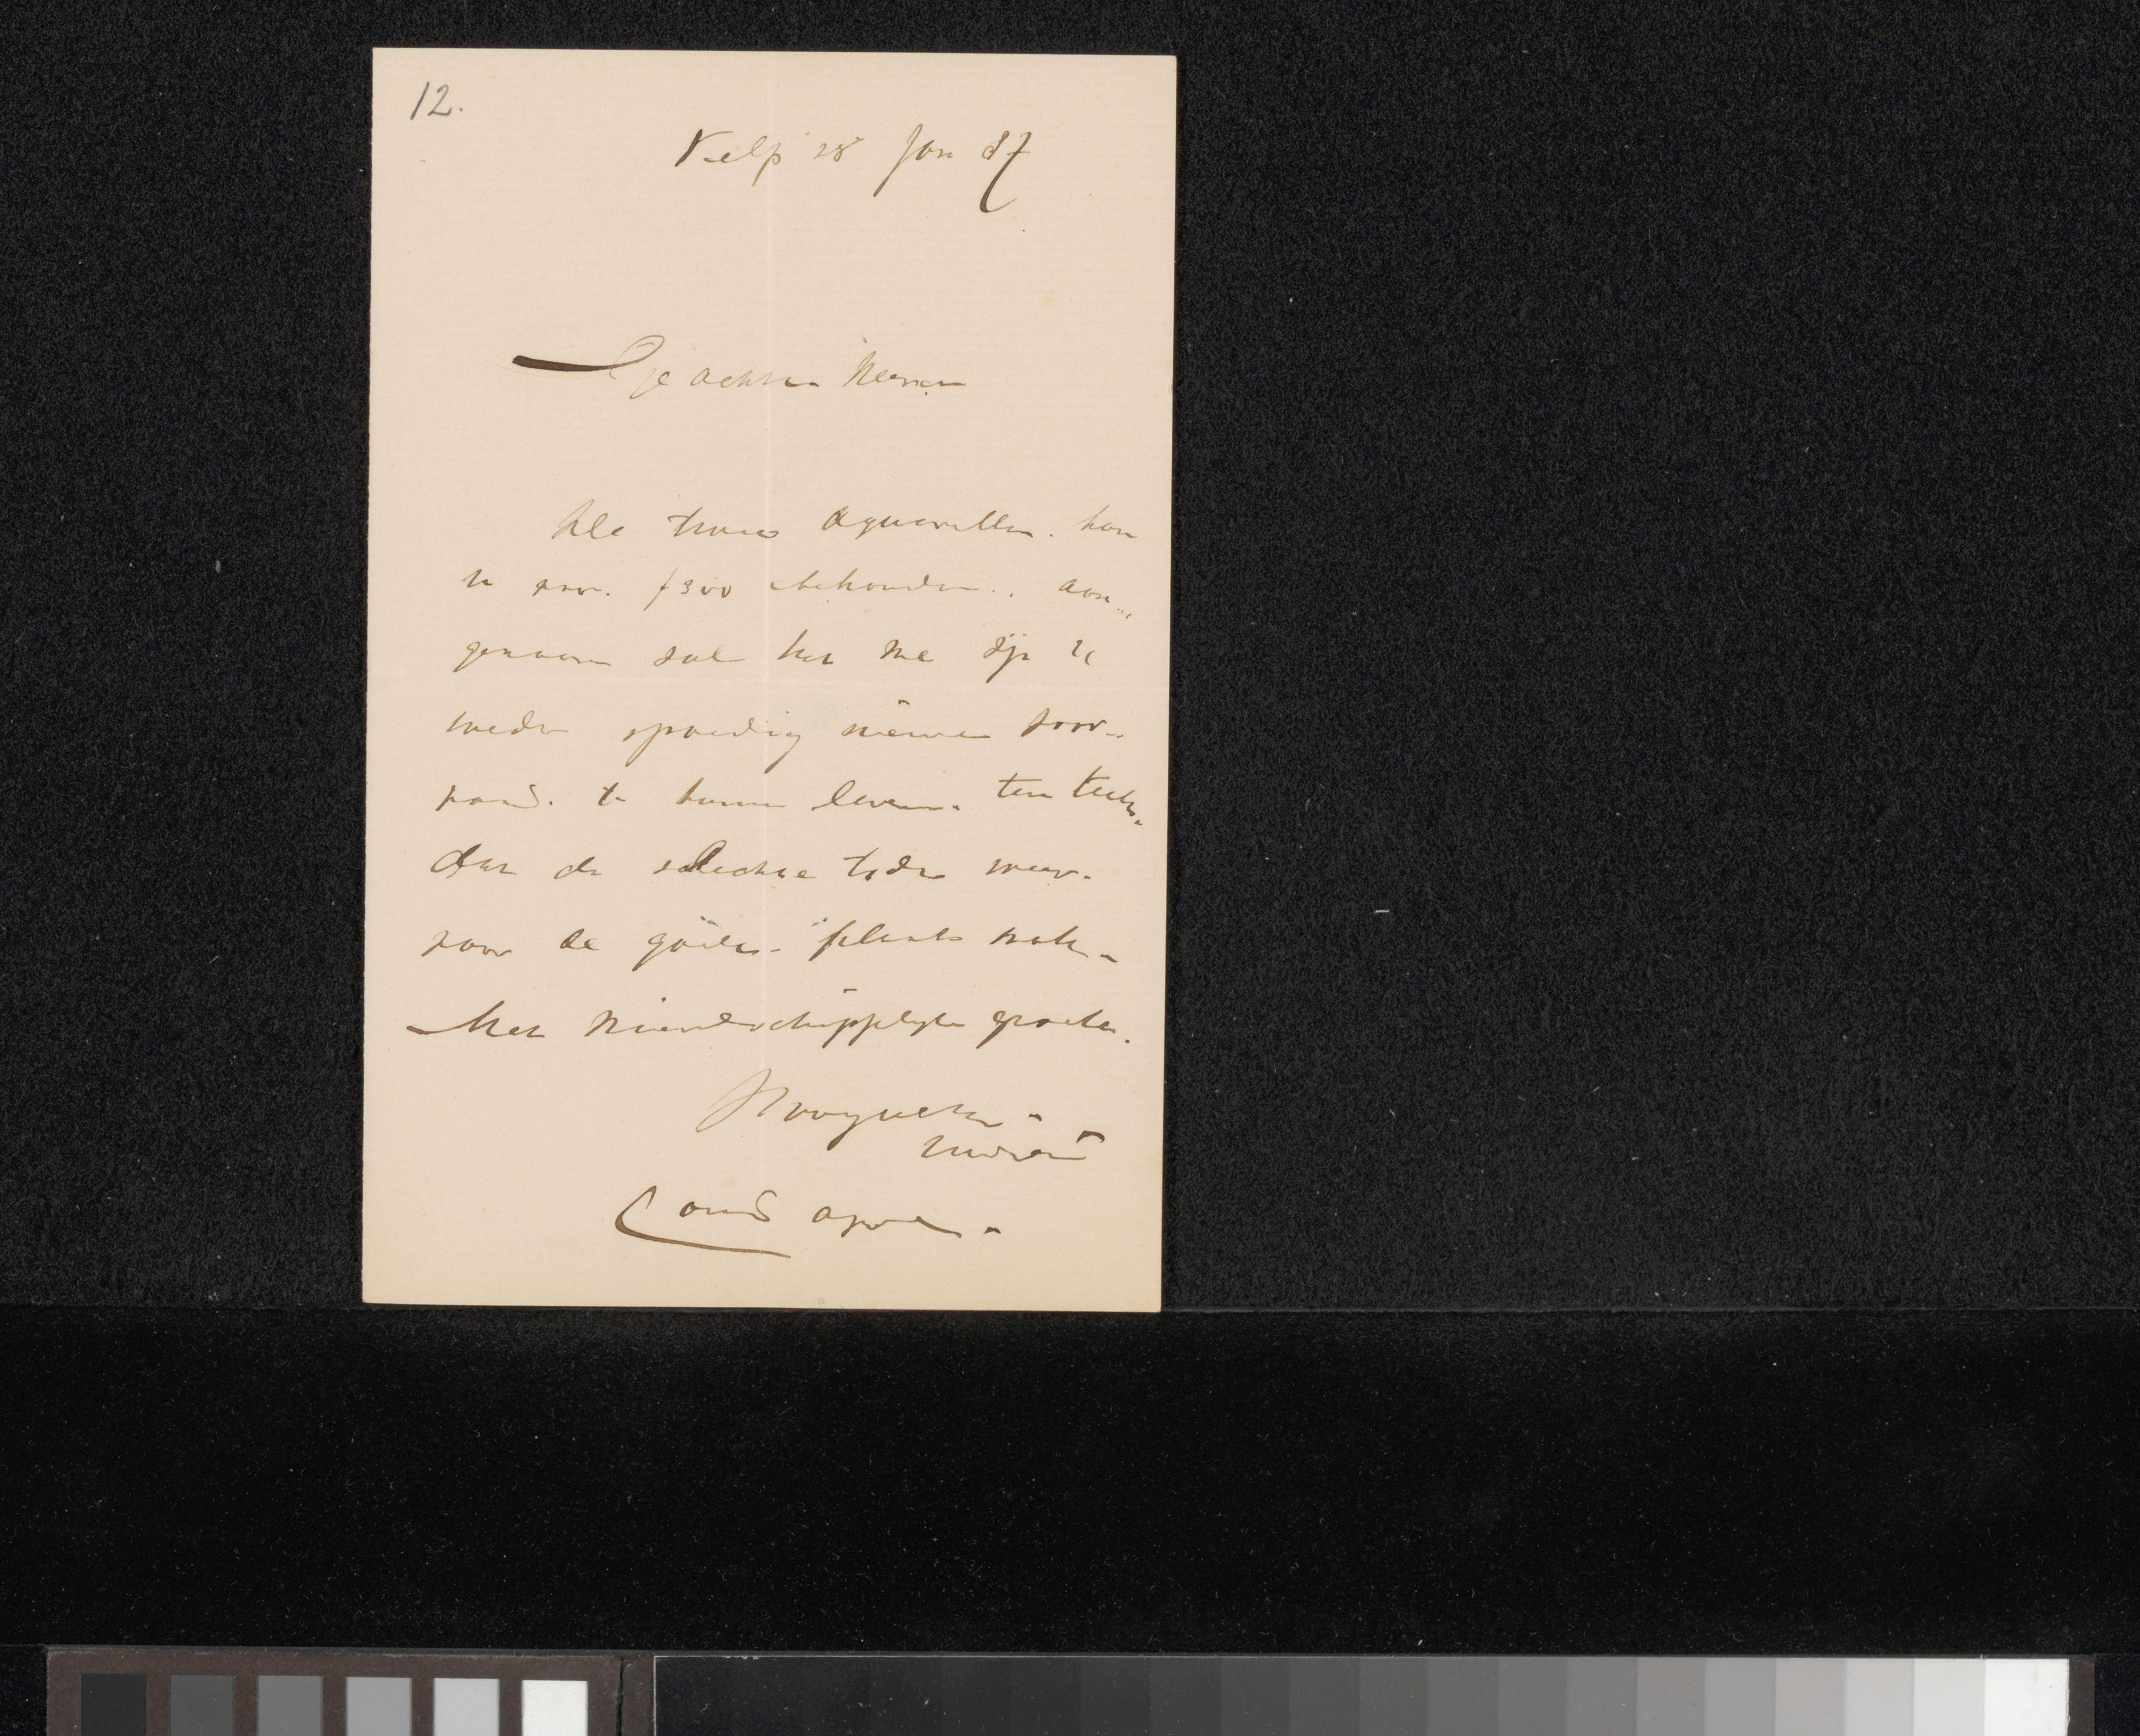 12.
Velp 28 Jan 87
Geachte Heeren
De twee Aquarellen. kan
u voor. f 300 behouden.. aan..
genaam zal het me zijn U
weder spoedig nieuwe voor..
raad. te kunnen leveren. ten teeken
dat de slechte tijden weer.
voor de goede. plaats maken.
Met vriendschappelyke groeten.
Hoogachtend.
Louis Apol.